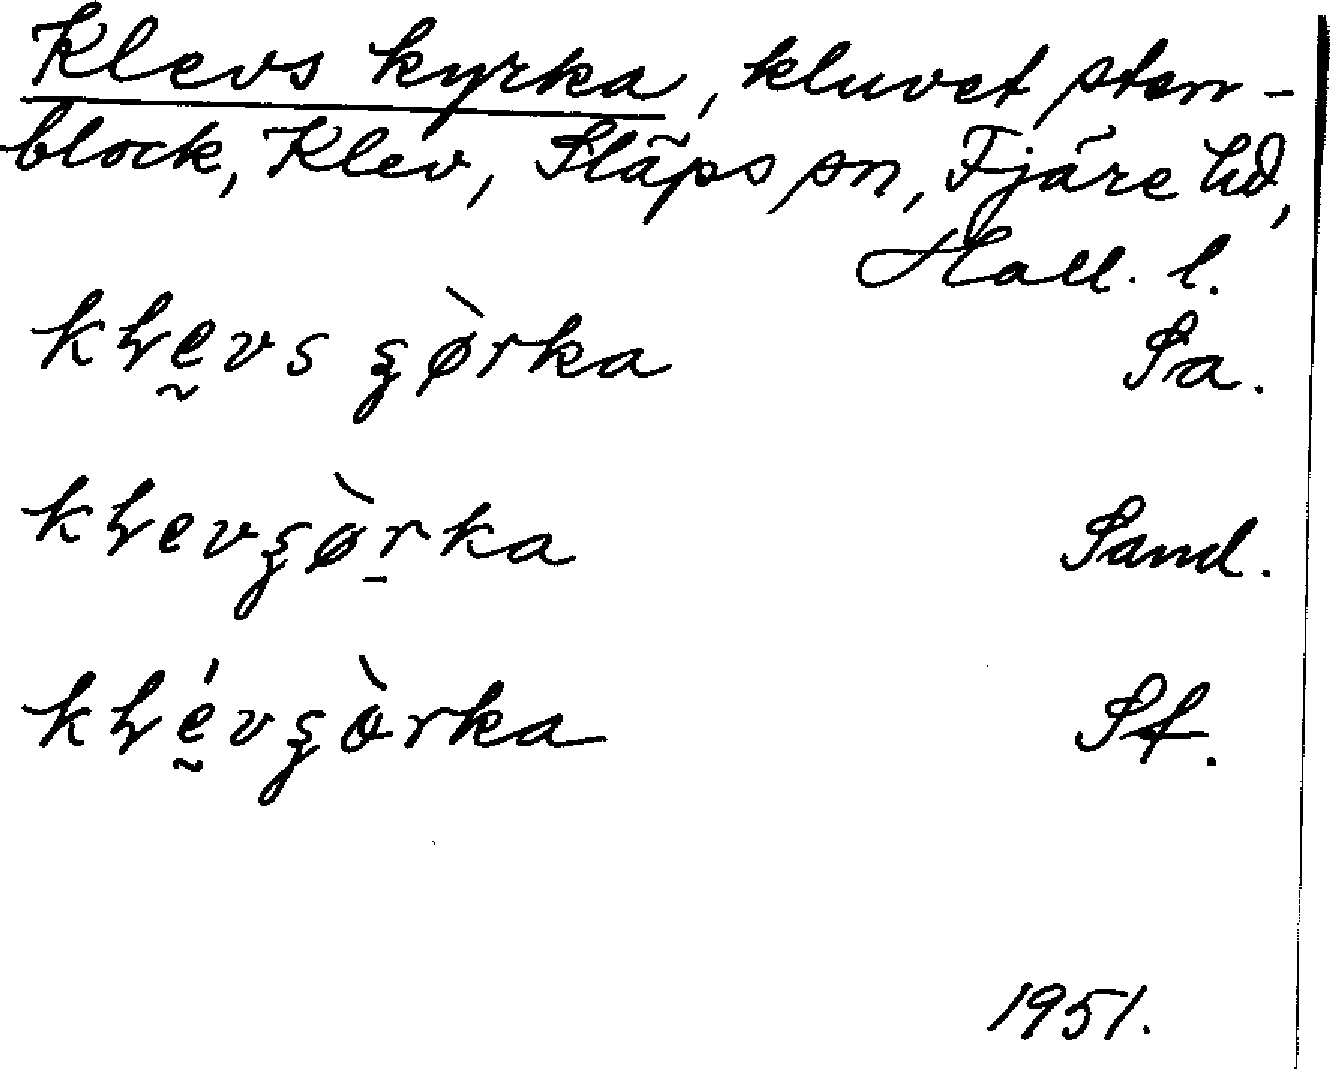 Klevs kyrka, kluvet sten-
block, Klev, Släps sn, Fjäre hd,
Hall. l.
kꞎḛvs ȿø̀rka Sa.
kꞎevȿø̀ṟka Sand.
kꞎḛ́vȿòrka Sf.
1951.